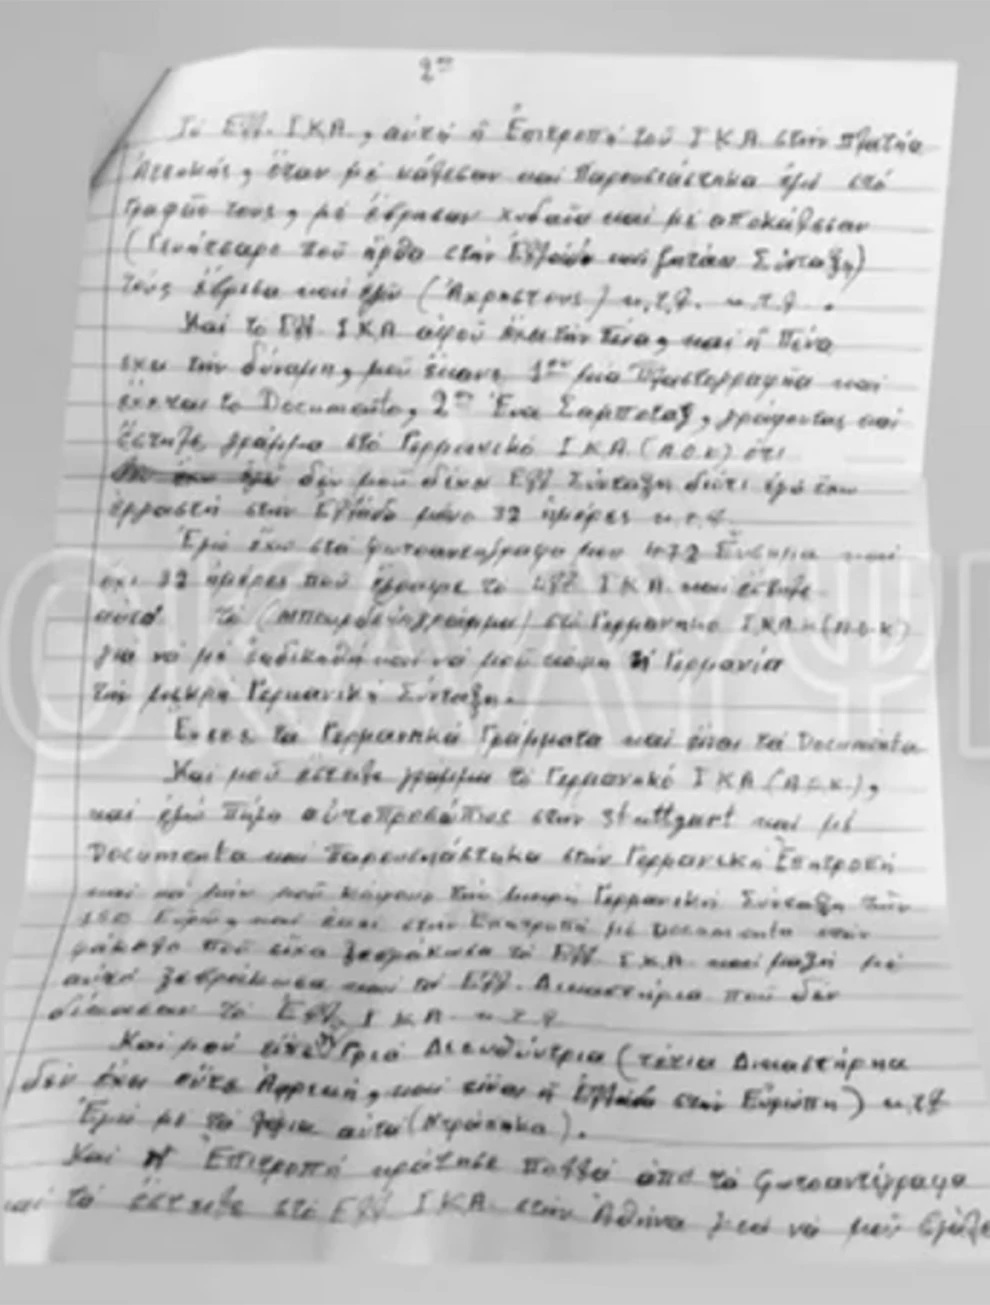 2ον
Το Ελλ. Ι Κ Α, αυτή ή Επιτροπή του Ι Κ Α στην Πλατεία
Αττικής, όταν με κάθεσαν και Παρουσιάστηκα εγώ στο
Γραφείο τους, με έβρησαν χυδαία και με αποκάθεσαν
(Γενήτσαρο που ήρθα στην Ελλάδα και ζητάω Σύνταξη)
τους έβρισα και εγώ (Άχρηστους) κ.τ.λ. κ.τ.λ.
Και το Ελλ. Ι Κ Α αφού έχει την Πένα, και ή Πένα
έχει την δύναμη, μου έκανε 1ον μια Πλαστογραφία και
έχεται το Documento, 2ον Ένα Σαμποτάζ, γράφοντας και
έστηλε γράμμα στο Γερμανικό Ι Κ Α (A.O.K) ότι
δεν μου δίνει Ελλ Σύνταξη διότι εγώ έχω
εργαστή στην Ελλάδα μόνο 32 ημέρες κ.τ.λ.
Εγώ έχω στα φωτοαντίγραφα μου 472 Ένσημα και
όχι 32 ημέρες που έγραψε το Ελλ Ι Κ Α και έστηλε
αυτό το γράμμα) στο Γερμανικό Ι.Κ.Α. (A.O.K)
για να με εκδικηθή και να μου κοψη ή Γερμανία
την μικρή Γερμανική Σύνταξη.
Έχετε τα Γερμανικά Γράμματα και είναι τα Documenta
Και μου έστειλε γράμμα το Γερμανικό Ι Κ Α (A.O.K.),
και εγώ Πήγα αυτοπροσώπως στην Stuttgart και με
Documenta και Παρουσιάστηκα στην Γερμανική Επιτροπή
και να μην μου κόψουν την μικρή Γερμανική Σύνταξη των
150 Ευρώ, και εκεί στην Επιτροπή με Documenta στον
φάκελο που είχα ξεσκέπασα το Ελλ Ι Κ Α και μαζή με
αυτό και τα Ελλ. Δικαστήρια που δεν
δίκασαν το Ελλ Ι Κ Α κ.τ.λ
Και μου είπε Γριά Διευθύντρια (τέτια Δικαστήρια
δεν έχει ούτε Αφρική, και είναι ή Ελλάδα στην Ευρώπη) κ.τ.λ
Εγώ με τα λόγια αυτά (Ντράπηκα).
Και Η Επιτροπή κράτησε Πολλά από τα φωτοαντίγραφα
και τα έστειλε στο Ελλ Ι Κ Α στην Αθήνα για να μου